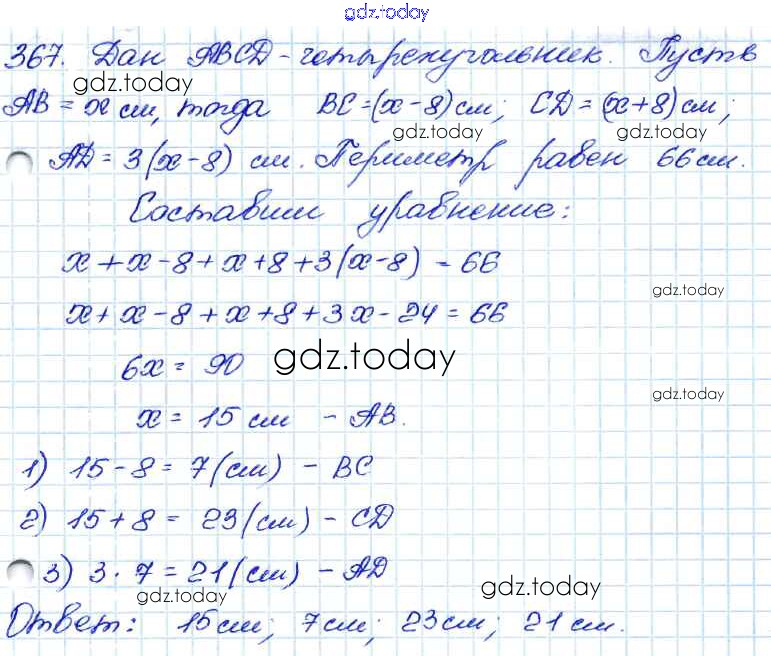 gdz.today
367. Дан ABCD - четырехугольник. Пусть
gdz.today
AB = x см, тогда BC = (x - 8) см; CD = (x + 8) см;
gdz.today gdz.today
AD = 3(x - 8) см. Периметр равен 66 см.
Составим уравнение:
x + x - 8 + x + 8 + 3(x - 8) = 66
gdz.today
x + x - 8 + x + 8 + 3x - 24 = 66
6x = 90
gdz.today
gdz.today
x = 15 см - AB.
1) 15 - 8 = 7 (см) - BC
2) 15 + 8 = 23 (см) - CD
3) 3 · 7 = 21 (см) - AD
gdz.today gdz.today
Ответ: 15 см; 7 см; 23 см; 21 см.